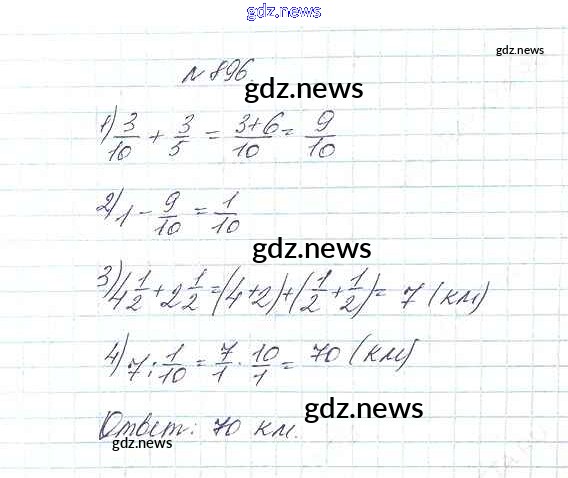 gdz.news
gdz.news
№ 896.
gdz.news
1) 3/10 + 3/5 = (3+6)/10 = 9/10
gdz.news
2) 1 - 9/10 = 1/10
gdz.news
3) 4 1/2 + 2 1/2 = (4+2)+(1/2 + 1/2) = 7 (км)
4) 7 : 1/10 = 7/1 · 10/1 = 70 (км)
gdz.news
Ответ: 70 км.
gdz.news